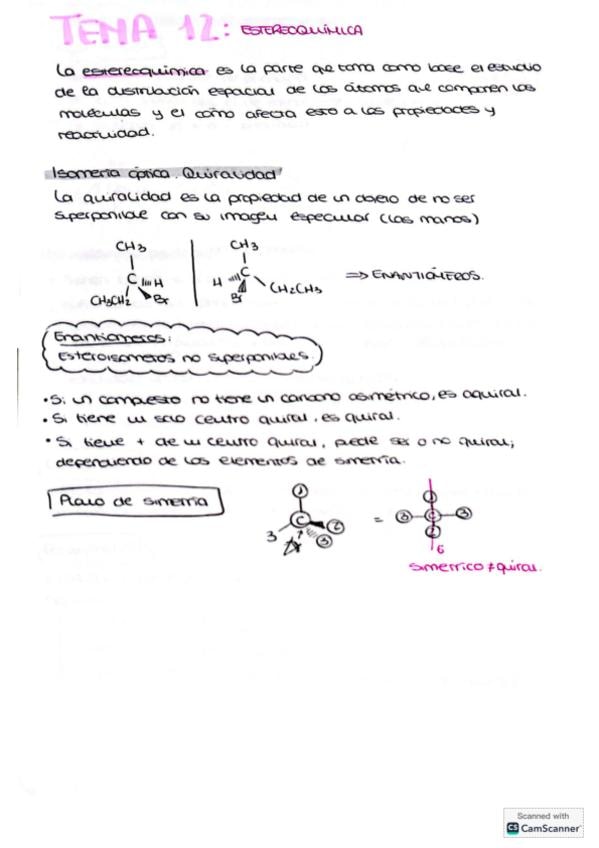 TEMA 12: ESTEREOQUÍMICA
La estereoquímica es la parte que toma como base el estudio
de la distribución espacial de los átomos que componen las
moléculas y el cómo afecta esto a las propiedades y
reactividad.
Isomería óptica. Quiralidad
La quiralidad es la propiedad de un objeto de no ser
superponible con su imagen especular (las manos)
CH3 CH3
C H H C CH2CH3 => ENANTIÓMEROS.
CH3CH2 Br Br
Enantiomeros:
Esteroisomeros no superponibles.
• Si un compuesto no tiene un carbono asimétrico, es aquiral.
• Si tiene un solo centro quiral, es quiral.
• Si tiene + de un centro quiral, puede ser o no quiral;
dependiendo de los elementos de simetría.
Plano de simetría
1 1
C 2 = 3 C 3
3 3 2
6
simétrico ≠ quiral.
Scanned with
CS CamScanner